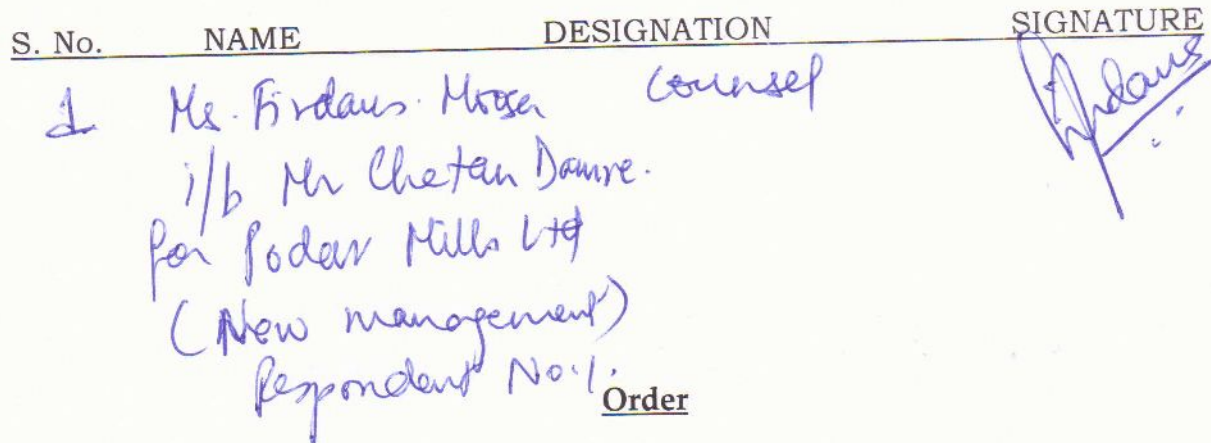 S. No. NAME DESIGNATION SIGNATURE
1 Ms. Firdaus Moosa Counsel Firdaus
i/b Mr Chetan Damre.
for Podar Mills Ltd
(New management)
Respondent No.1.
Order